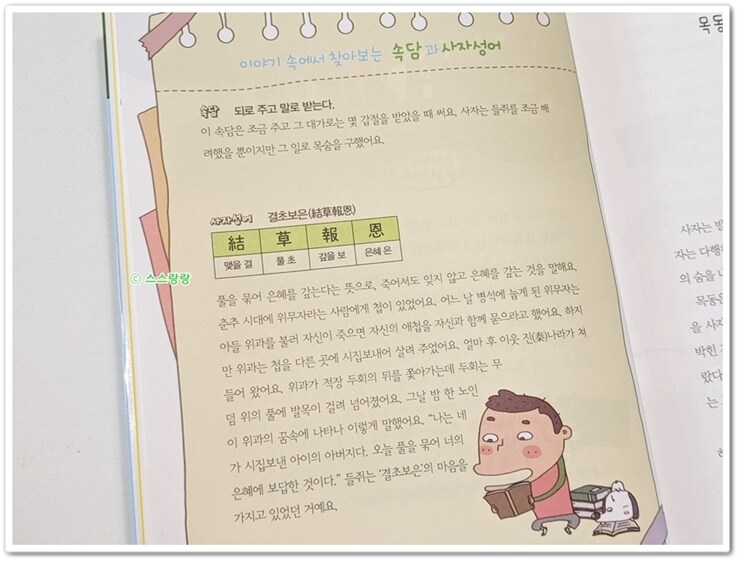 이야기 속에서 찾아보는 속담과 사자성어
속담 되로 주고 말로 받는다.
이 속담은 조금 주고 그 대가로는 몇 갑절을 받았을 때 써요. 사자는 들쥐를 조금 배
려했을 뿐이지만 그 일로 목숨을 구했어요.
사자성어 결초보은(結草報恩)
結 草 報 恩
맺을 결 풀 초 갚을 보 은혜 은
© 스스랑랑
풀을 묶어 은혜를 갚는다는 뜻으로, 죽어서도 잊지 않고 은혜를 갚는 것을 말해요.
춘추 시대에 위무자라는 사람에게 첩이 있었어요. 어느 날 병석에 눕게 된 위무자는
아들 위과를 불러 자신이 죽으면 자신의 애첩을 자신과 함께 묻으라고 했어요. 하지
만 위과는 첩을 다른 곳에 시집보내어 살려 주었어요. 얼마 후 이웃 진(秦)나라가 쳐
들어 왔어요. 위과가 적장 두회의 뒤를 쫓아가는데 두회는 무
덤 위의 풀에 발목이 걸려 넘어졌어요. 그날 밤 한 노인
이 위과의 꿈속에 나타나 이렇게 말했어요. “나는 네
가 시집보낸 아이의 아버지다. 오늘 풀을 묶어 너의
은혜에 보답한 것이다.” 들쥐는 ‘결초보은’의 마음을
가지고 있었던 거예요.
목동
사자는 발
자는 다행
의 숨을 나
목동은
을 사자
박힌
랐다
는